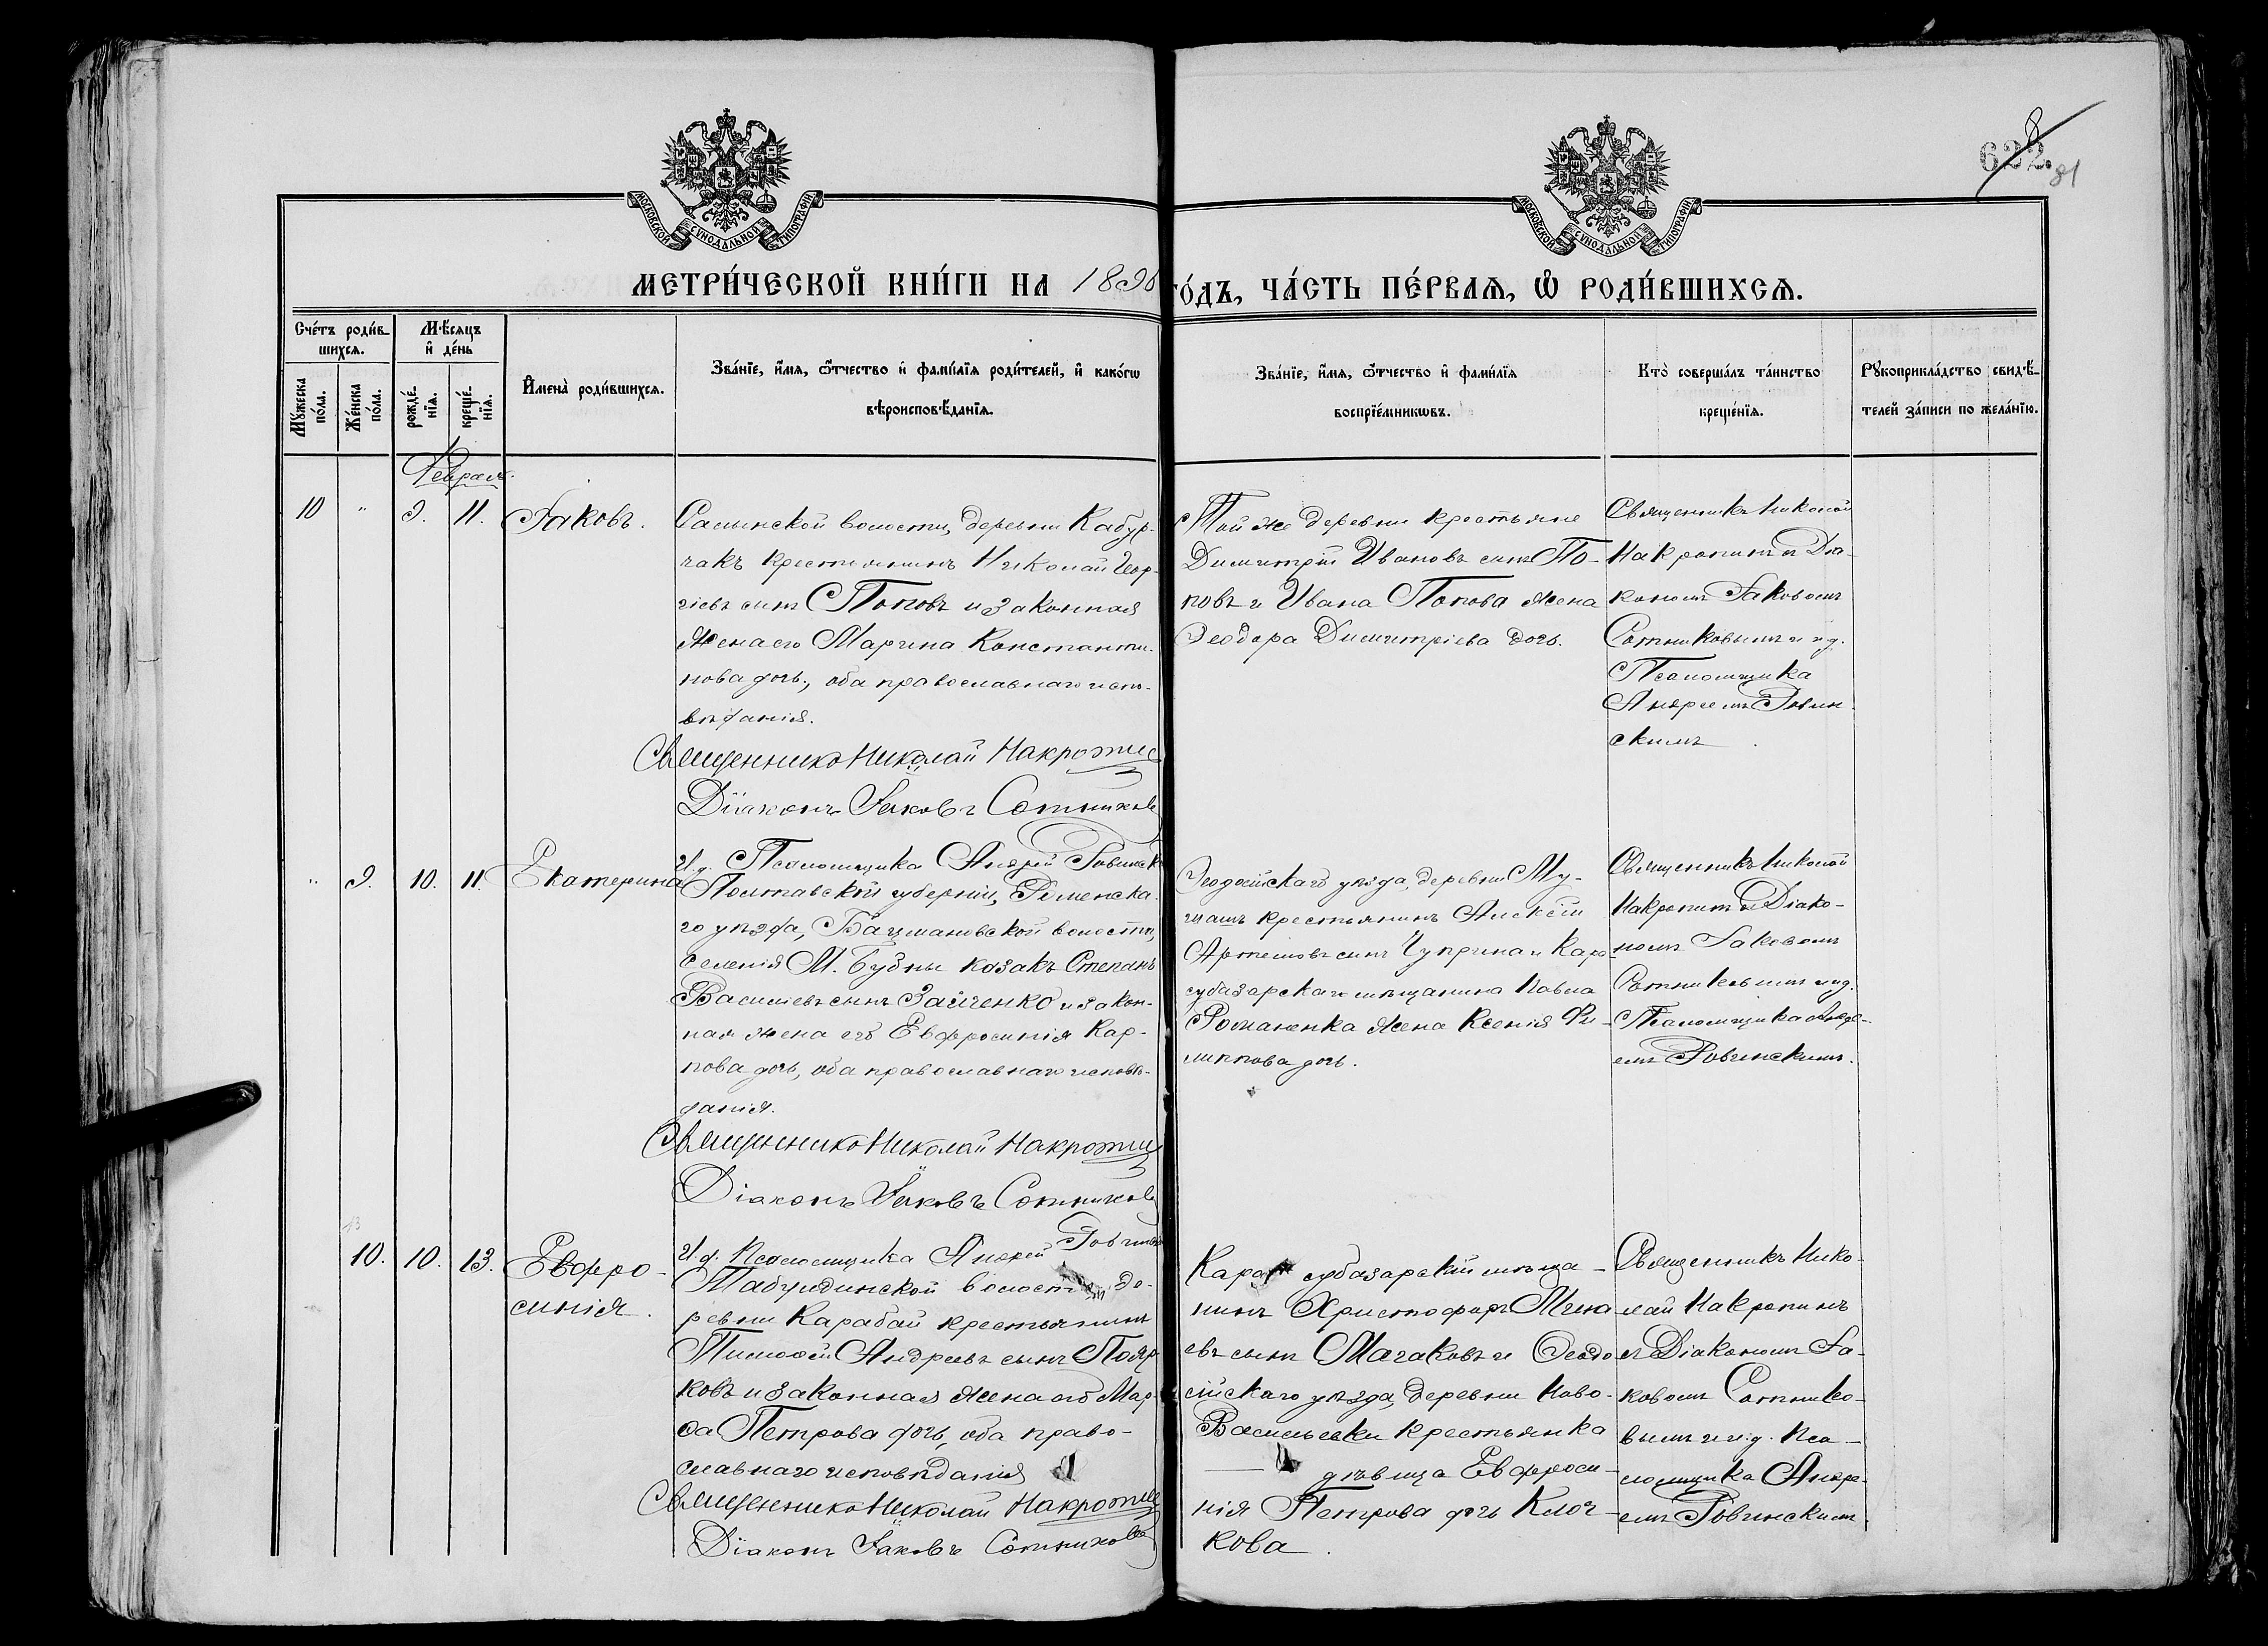 622.
8
81
МОСКОВСКОЙ СѴНОДАЛЬНОЙ ТИПОГРАФІИ
МОСКОВСКОЙ СѴНОДАЛЬНОЙ ТИПОГРАФІИ
МЕТРИ́ЧЕСКОЙ КНИ́ГИ НА 1896
ГО́ДЪ, ЧА́СТЬ ПЕ́РВАѦ, Ѡ҆ РОДИ́ВШИХСѦ.
Сче́тъ роди́в-
шихсѧ.
Мѣ́сѧцъ
и҆ де́нь
Мꙋ́жеска по́ла.
Же́нска по́ла.
рожде́-
нїѧ.
креще́-
нїѧ.
И҆мена̀ роди́вшихсѧ.
Зва́нїе, и҆́мѧ, ѻ҆́тчество и҆ фами́лїѧ роди́телей, и҆ како́гѡ
вѣроисповѣ́данїѧ.
Зва́нїе, и҆́мѧ, ѻ҆́тчество и҆ фами́лїѧ
воспрїе́мникѡвъ.
Кто̀ соверша́лъ та́инство
креще́нїѧ.
Рꙋкоприкла́дство свидѣ́-
телей за́писи по жела́нїю.
Февраль.
10 " 9. 11. Іаковъ.
Салынской волости, деревни Кабур-
чакъ крестьянинъ Николай Геор-
гіевъ сынъ Поповъ и законная
жена его Марина Константи-
нова дочь, оба православнаго испо-
вѣданія.
Священникъ Николай Накропин
Діаконъ Іаковъ Сотников
И.д. Псаломщика Андрей Ровинск
Той же деревни крестьяне
Димитрій Ивановъ сынъ По-
повъ и Ивана Попова жена
Ѳеодора Димитріева дочь.
Священникъ Николай
Накропинъ съ Діа-
кономъ Іаковомъ
Сотниковымъ и и.д.
Псаломщика
Андреемъ Ровин
скимъ
" 9. 10. 11. Екатерина
Полтавской губерніи, Роменска-
го уѣзда, Бацмановской волости,
селенія М. Бубны козакъ Степанъ
Василіевъ сынъ Зайченко и закон-
ная жена его Евфросинія Кар-
пова дочь, оба православнаго исповѣ-
данія.
Священникъ Николай Накропин
Діаконъ Іаковъ Сотников
И.д. Псаломщика Андрей Ровинс
Ѳеодосійскаго уѣзда, деревни Му-
крестьянинъ Алексѣй
Артемовъ сынъ Чуприна и Кара-
субазарскаго мѣщанина Павла
Романенка жена Ксенія Фи-
липпова дочь.
Священникъ Николай
Накропинъ съ Діако-
номъ Іаковомъ
Сотниковымъ и и.д.
Псаломщика Андре-
емъ Ровинскимъ.
10. 10. 13. Евфро-
синія.
Табулдинской волости де-
ревни Карабай крестьянинъ
Тимоѳей Андреевъ сынъ Пояр
ковъ и законная жена его Мар-
ѳа Петрова дочь, оба право-
славнаго исповѣданія
Священникъ Николай Накропин
Діаконъ Іаковъ Сотников
Кара субазарскій мѣща-
нинъ Христофоръ Мина
евъ сынъ Магаковъ и Ѳеодо
сійскаго уѣзда, деревни Ново-
Васильевки крестьянка
дѣвица Евфроси-
нія Петрова дочь Клоч-
кова.
Священникъ Нико-
лай Накропинъ
съ Діакономъ Іа-
ковомъ Сотнико-
вымъ и и.д. Пса-
ломщика Андре-
емъ Ровинскимъ.